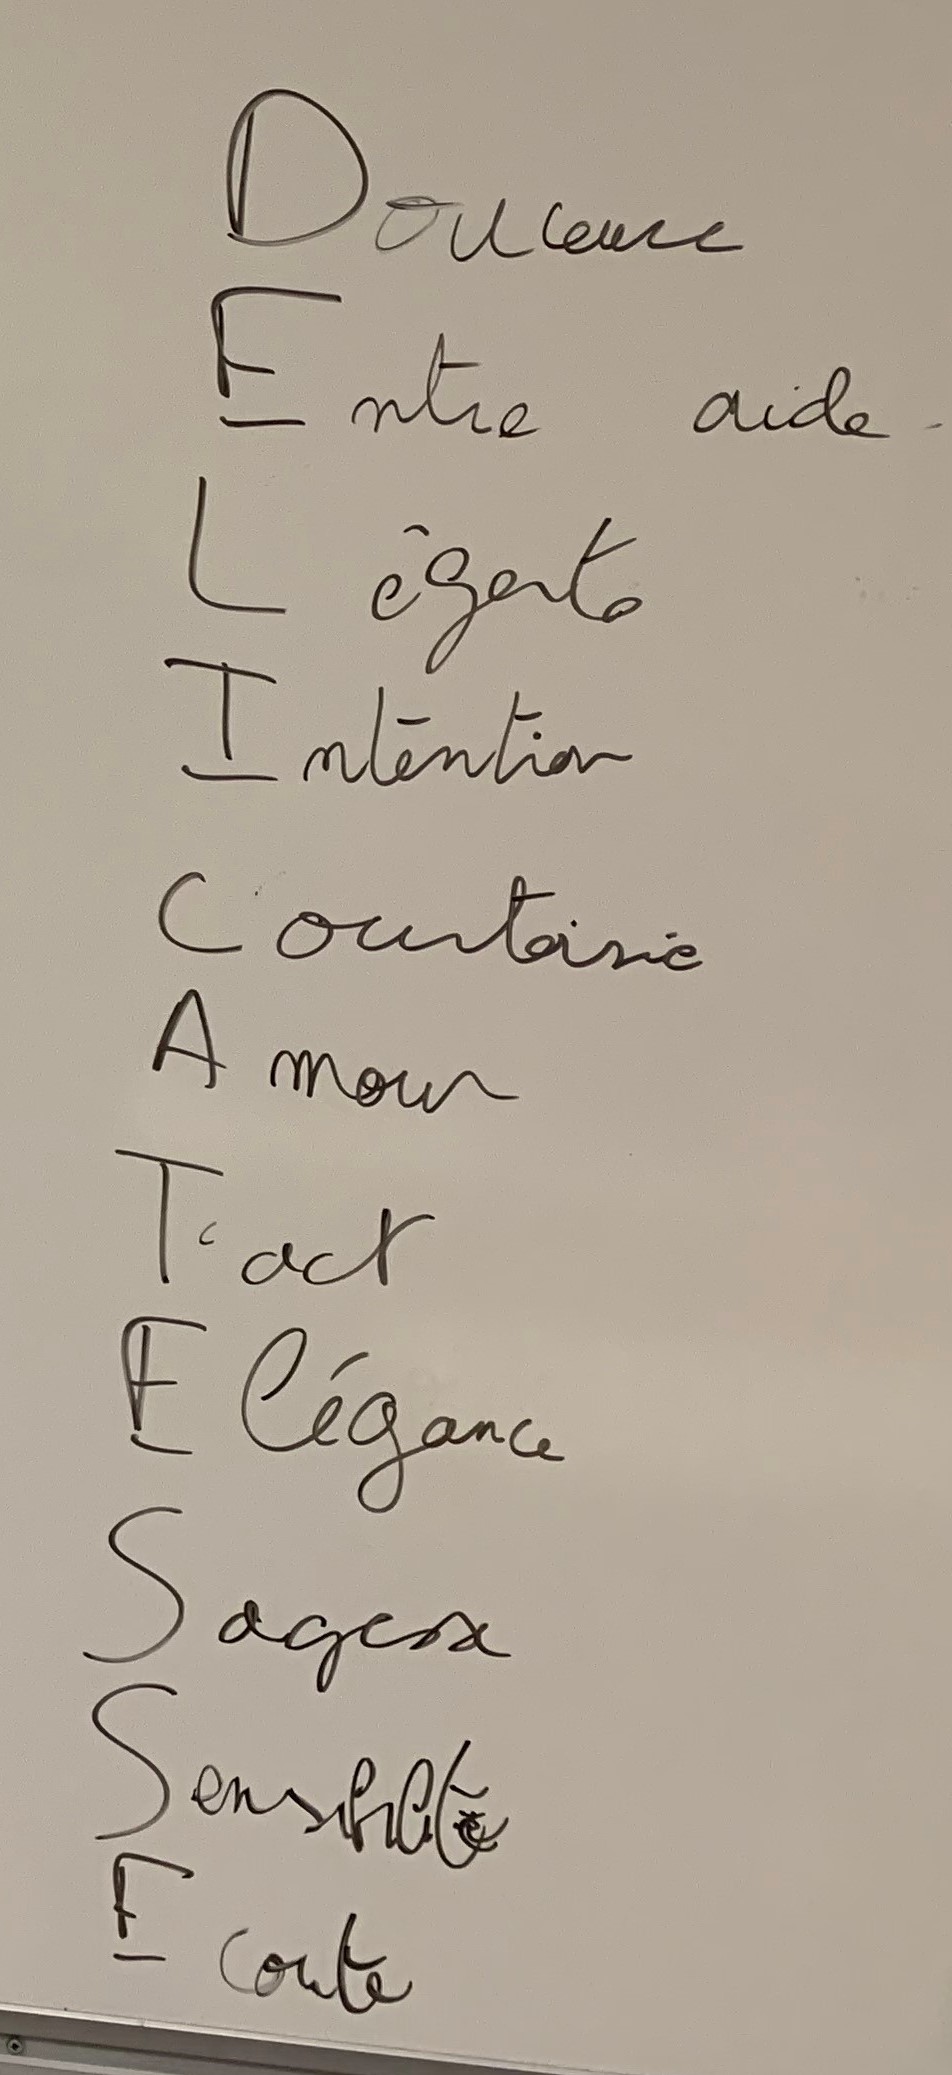 Douceur
Entre aide
Légerté
Intention
Courtoisie
Amour
Tact
Elégance
Sagesse
Sensibilité
Ecoute